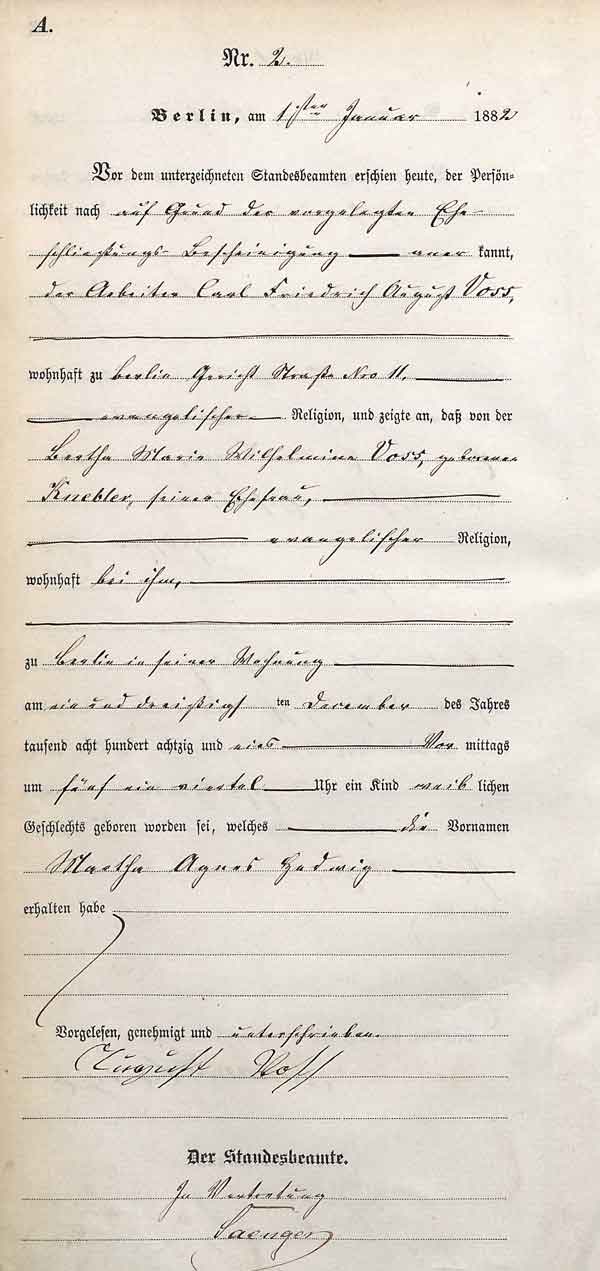 A.
Nr. 2.
Berlin, am 1sten Januar 1882
Vor dem unterzeichneten Standesbeamten erschien heute, der Persön-
lichkeit nach auf Grund der vorgelegten Ehe-
schließungs-Bescheinigung anerkannt,
der Arbeiter Carl Friedrich August Voss,
wohnhaft zu Berlin Gericht Straße Nro 11.
evangelischer Religion, und zeigte an, daß von der
Bertha Marie Wilhelmine Voss, geborenen
Knebler, seiner Ehefrau,
evangelischer Religion,
wohnhaft bei ihm,
zu Berlin in seiner Wohnung
am ein und dreißigsten December des Jahres
tausend acht hundert achtzig und eins Vormittags
um fünf ein viertel Uhr ein Kind weiblichen
Geschlechts geboren worden sei, welches die Vornamen
Martha Agnes Hedwig
erhalten habe
Vorgelesen, genehmigt und unterschrieben.
August Voss
Der Standesbeamte.
In Vertretung
Saenger